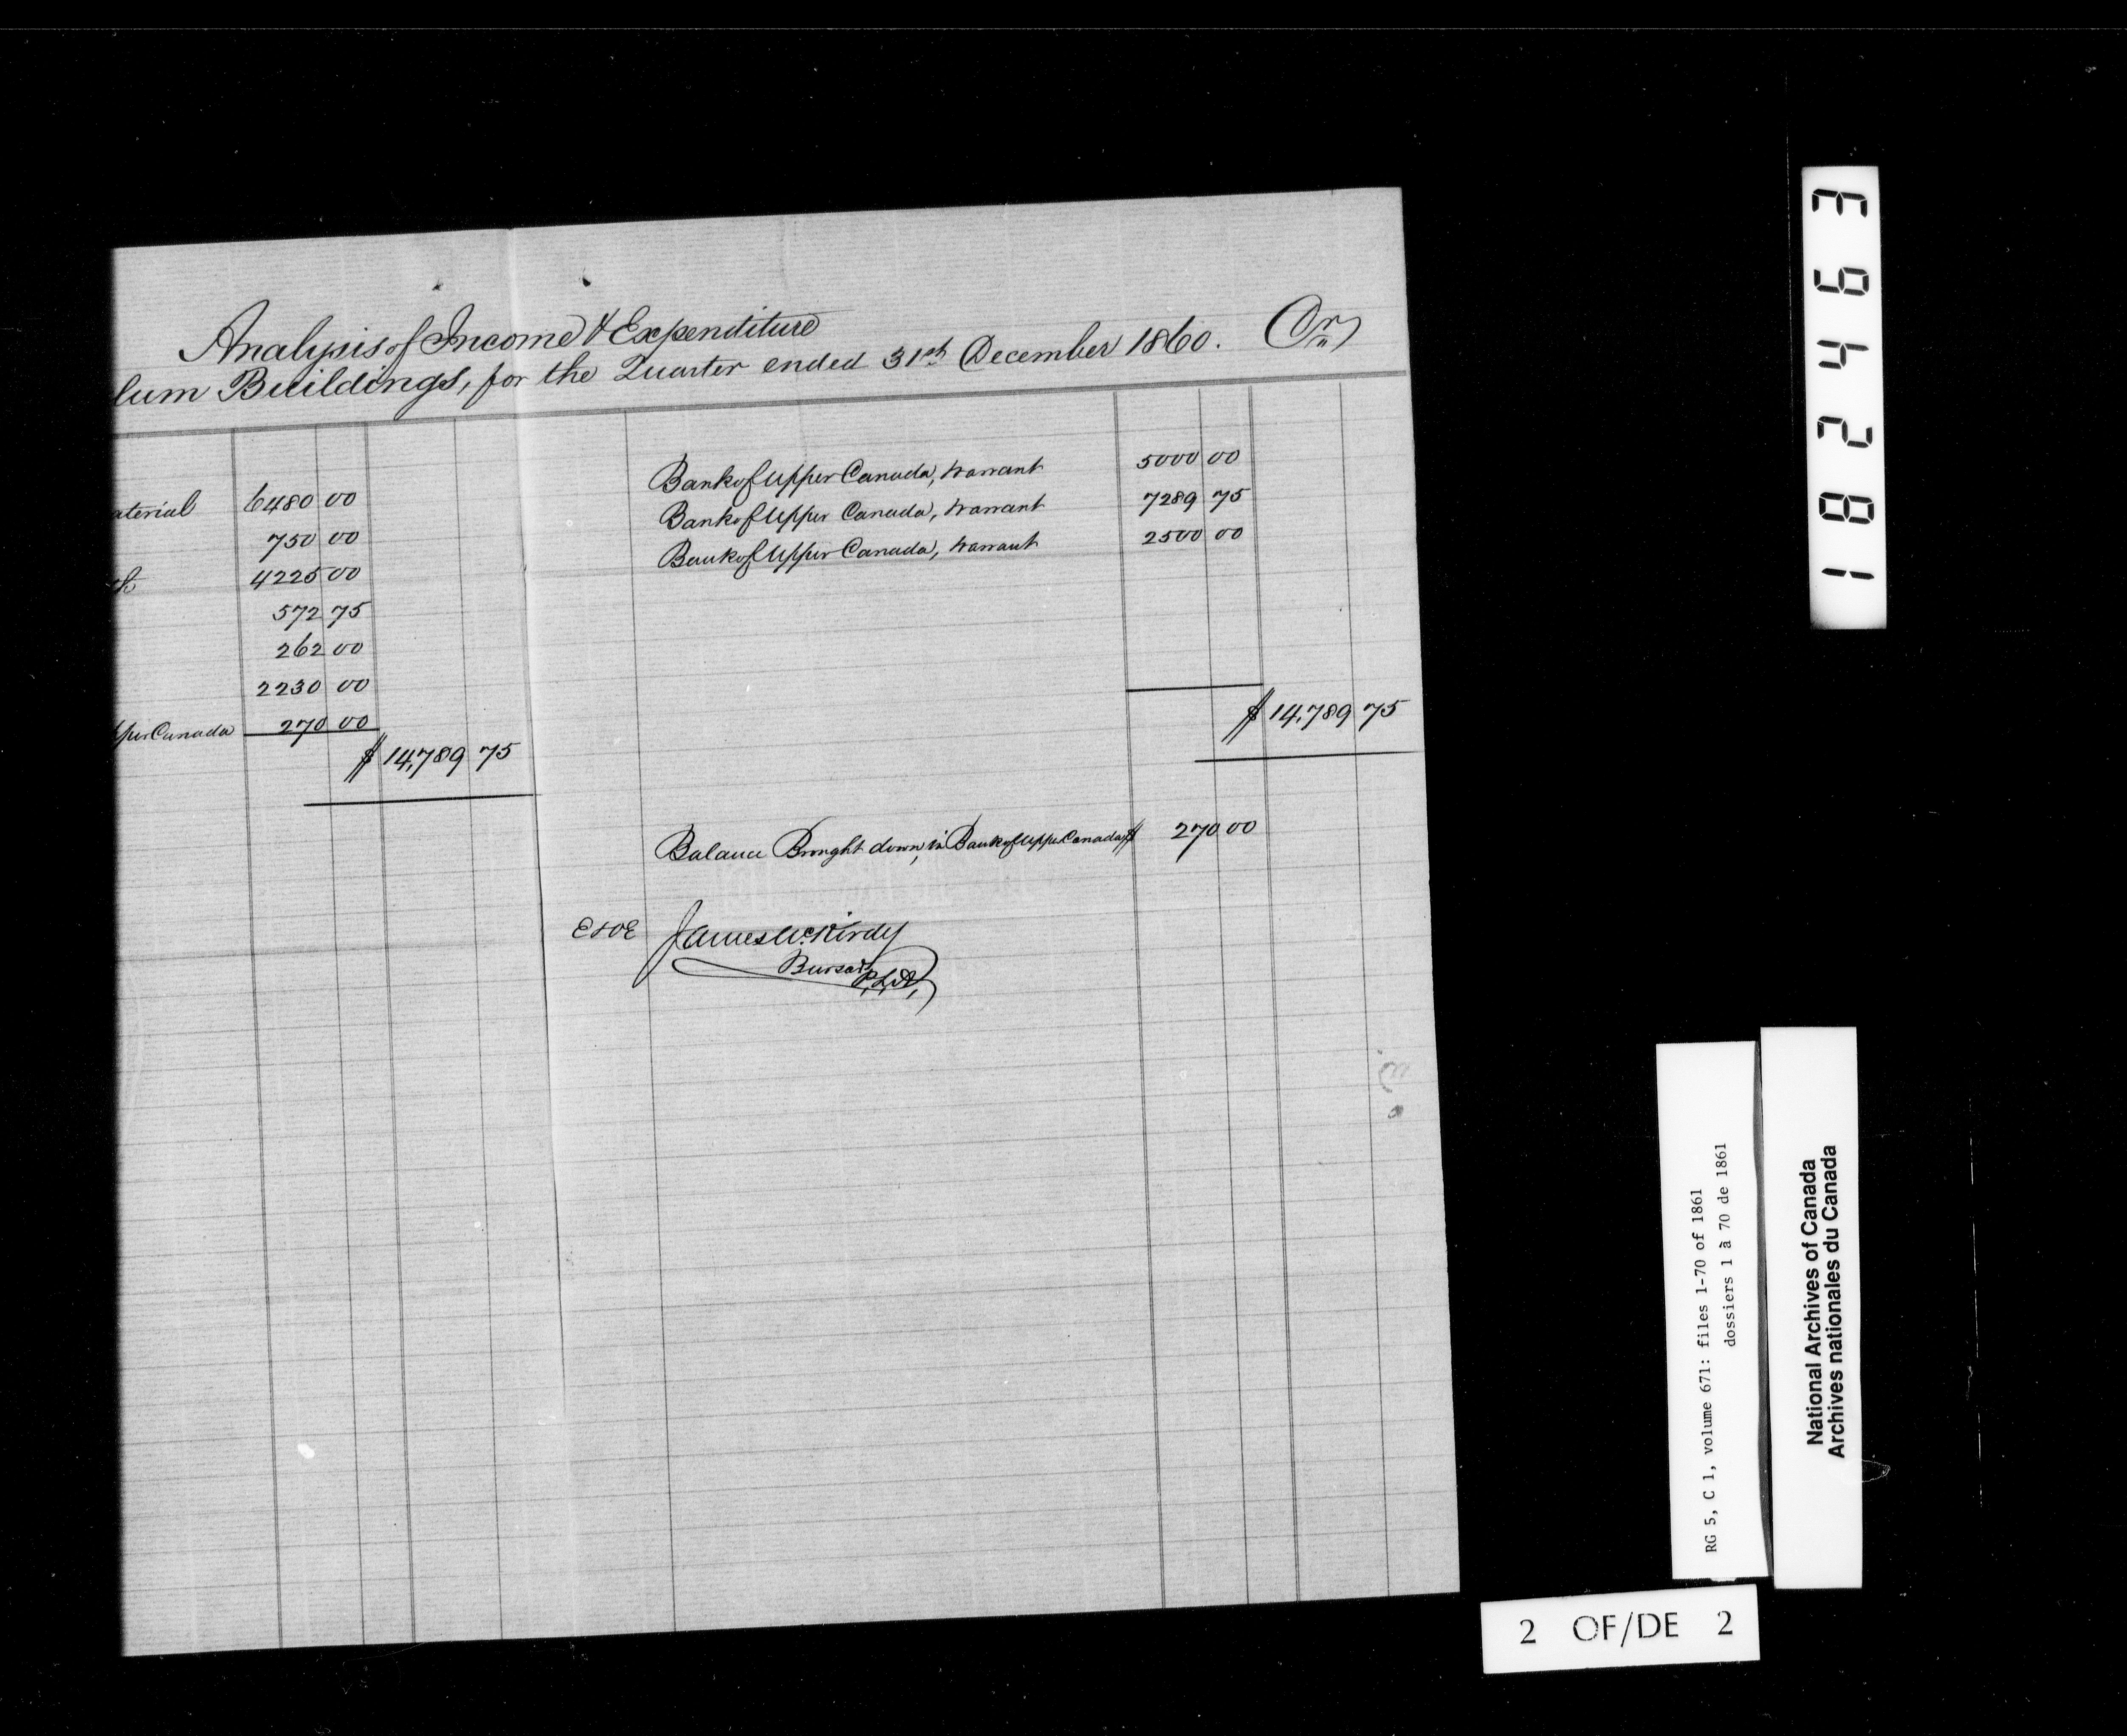 Analysis of Income & Expenditure
lum Buildings, for the Quarter ended 31st December 1860. Cr
aterial 6480 00
750 00
4225 00
572 75
262 00
2230 00
pper Canada 270 00
$ 14,789 75
Bank of Upper Canada, Warrant 5000 00
Bank of Upper Canada, Warrant 7289 75
Bank of Upper Canada, Warrant 2500 00
$ 14,789 75
Balance Brought down, in Bank of Upper Canada $ 270 00
E&OE James McKirdy
Bursar,
P.L.A.
182463
RG 5, C 1, volume 671: files 1-70 of 1861
dossiers 1 à 70 de 1861
National Archives of Canada
Archives nationales du Canada
2 OF/DE 2